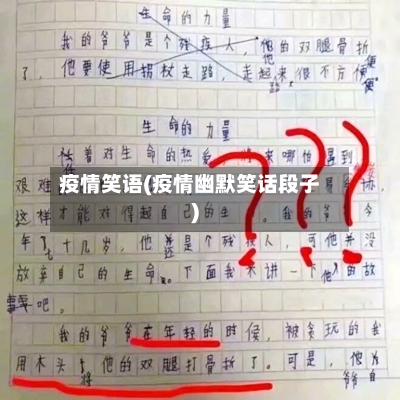 生命的力量
我的爷爷是个残疾人,他的双腿骨折
了,他要使用拐杖走路,走起来很不方便
生命的力量
着对生命的热爱,将来哪怕遇到
艰难
疫情笑语(疫情幽默笑话段子
)
这样才能对得起自己的生。我的爷爷今
年七十几岁,他是个残疾人,可他并没
放弃自己的生命。下面我来讲一下他的故
事吧。
我的爷爷在年轻的时候,被贪玩的我
用木头将他的双腿打骨折了。可是,他为
爷爷自